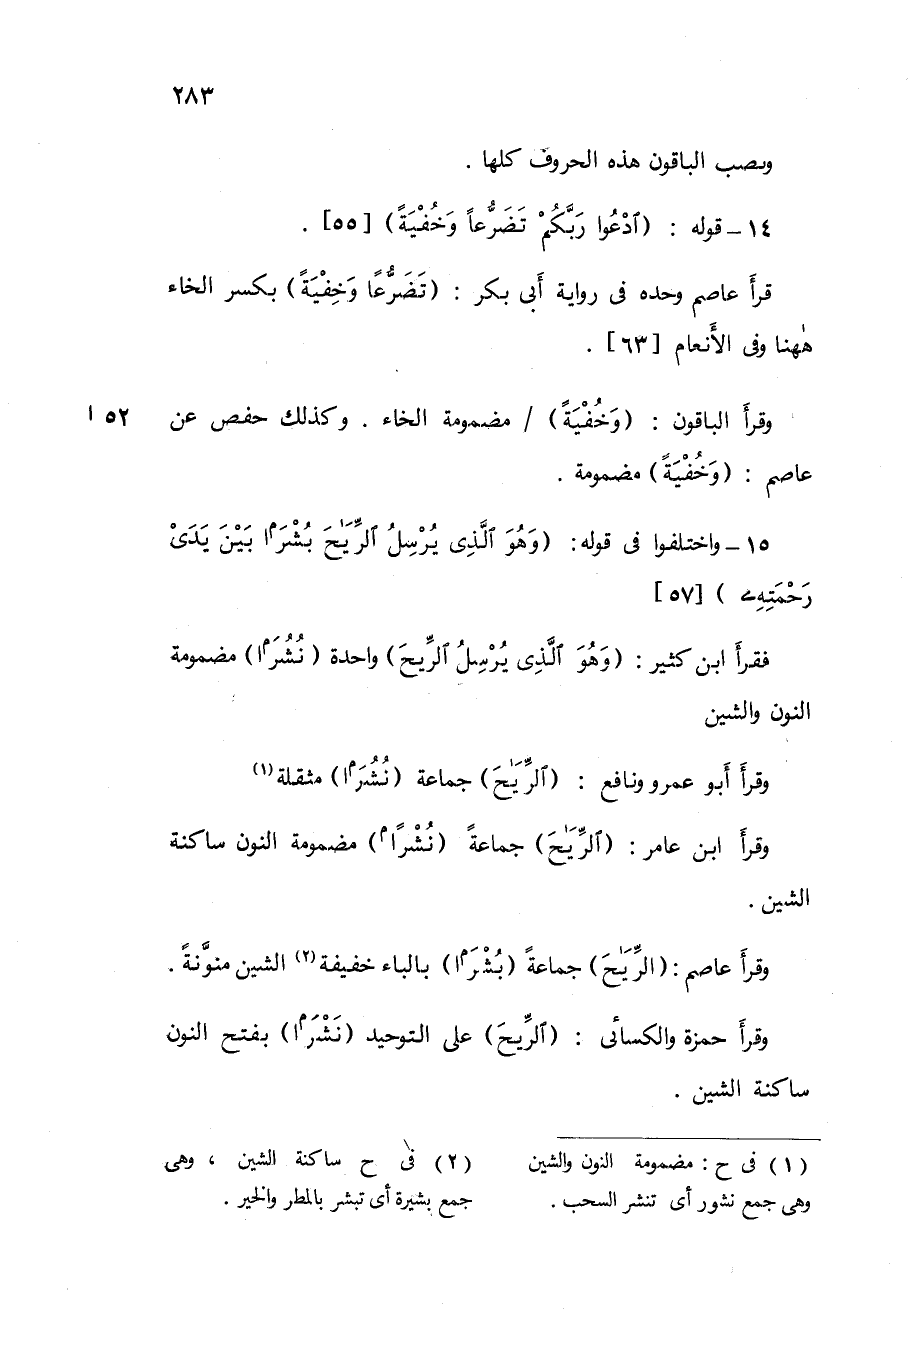 ٢٨٣
ونصب الباقون هذه الحروف كلها .
١٤ – قوله : ( ٱدْعُوا رَبَّكُمْ تَضَرُّعاً وَخُفْيَةً ) [٥٥] .
قرأ عاصم وحده فى رواية أبى بكر : ( تَضَرُّعًا وَخِفْيَةً ) بكسر الخاء
هٰهنا وفى الأَنعام [٦٣] .
وقرأَ الباقون : ( وَخُفْيَةً ) / مضمومة الخاء . وكذلك حفص عن ٥٢ ا
عاصم : ( وَخُفْيَةً ) مضمومة .
١٥ – واختلفوا فى قوله: ( وَهُوَ ٱلَّذِى يُرْسِلُ ٱلرِّيَٰحَ بُشْرَۢا بَيْنَ يَدَىْ
رَحْمَتِهِۦ ) [٥٧]
فقرأَ ابن كثير : ( وَهُوَ ٱلَّذِى يُرْسِلُ ٱلرِّيحَ ) واحدة ( نُشُرَۢا ) مضمومة
النون والشين
وقرأَ أَبو عمرو ونافع : ( ٱلرِّيَٰحَ ) جماعة ( نُشُرَۢا ) مثقلة(١)
وقرأَ ابن عامر : ( ٱلرِّيَٰحَ ) جماعةً ( نُشْرًاۢ ) مضمومة النون ساكنة
الشين .
وقرأَ عاصم : ( الرِّيَٰحَ ) جماعةً ( بُشْرَۢا ) بالباء خفيفة(٢) الشين منوَّنةً .
وقرأَ حمزة والكسائى : ( ٱلرِّيحَ ) على التوحيد ( نَشْرَۢا ) بفتح النون
ساكنة الشين .
( ١ ) فى ح : مضمومة النون والشين
وهى جمع نشور أى تنشر السحب .
( ٢ ) فى ح ساكنة الشين ، وهى
جمع بشيرة أى تبشر بالمطر والخير .